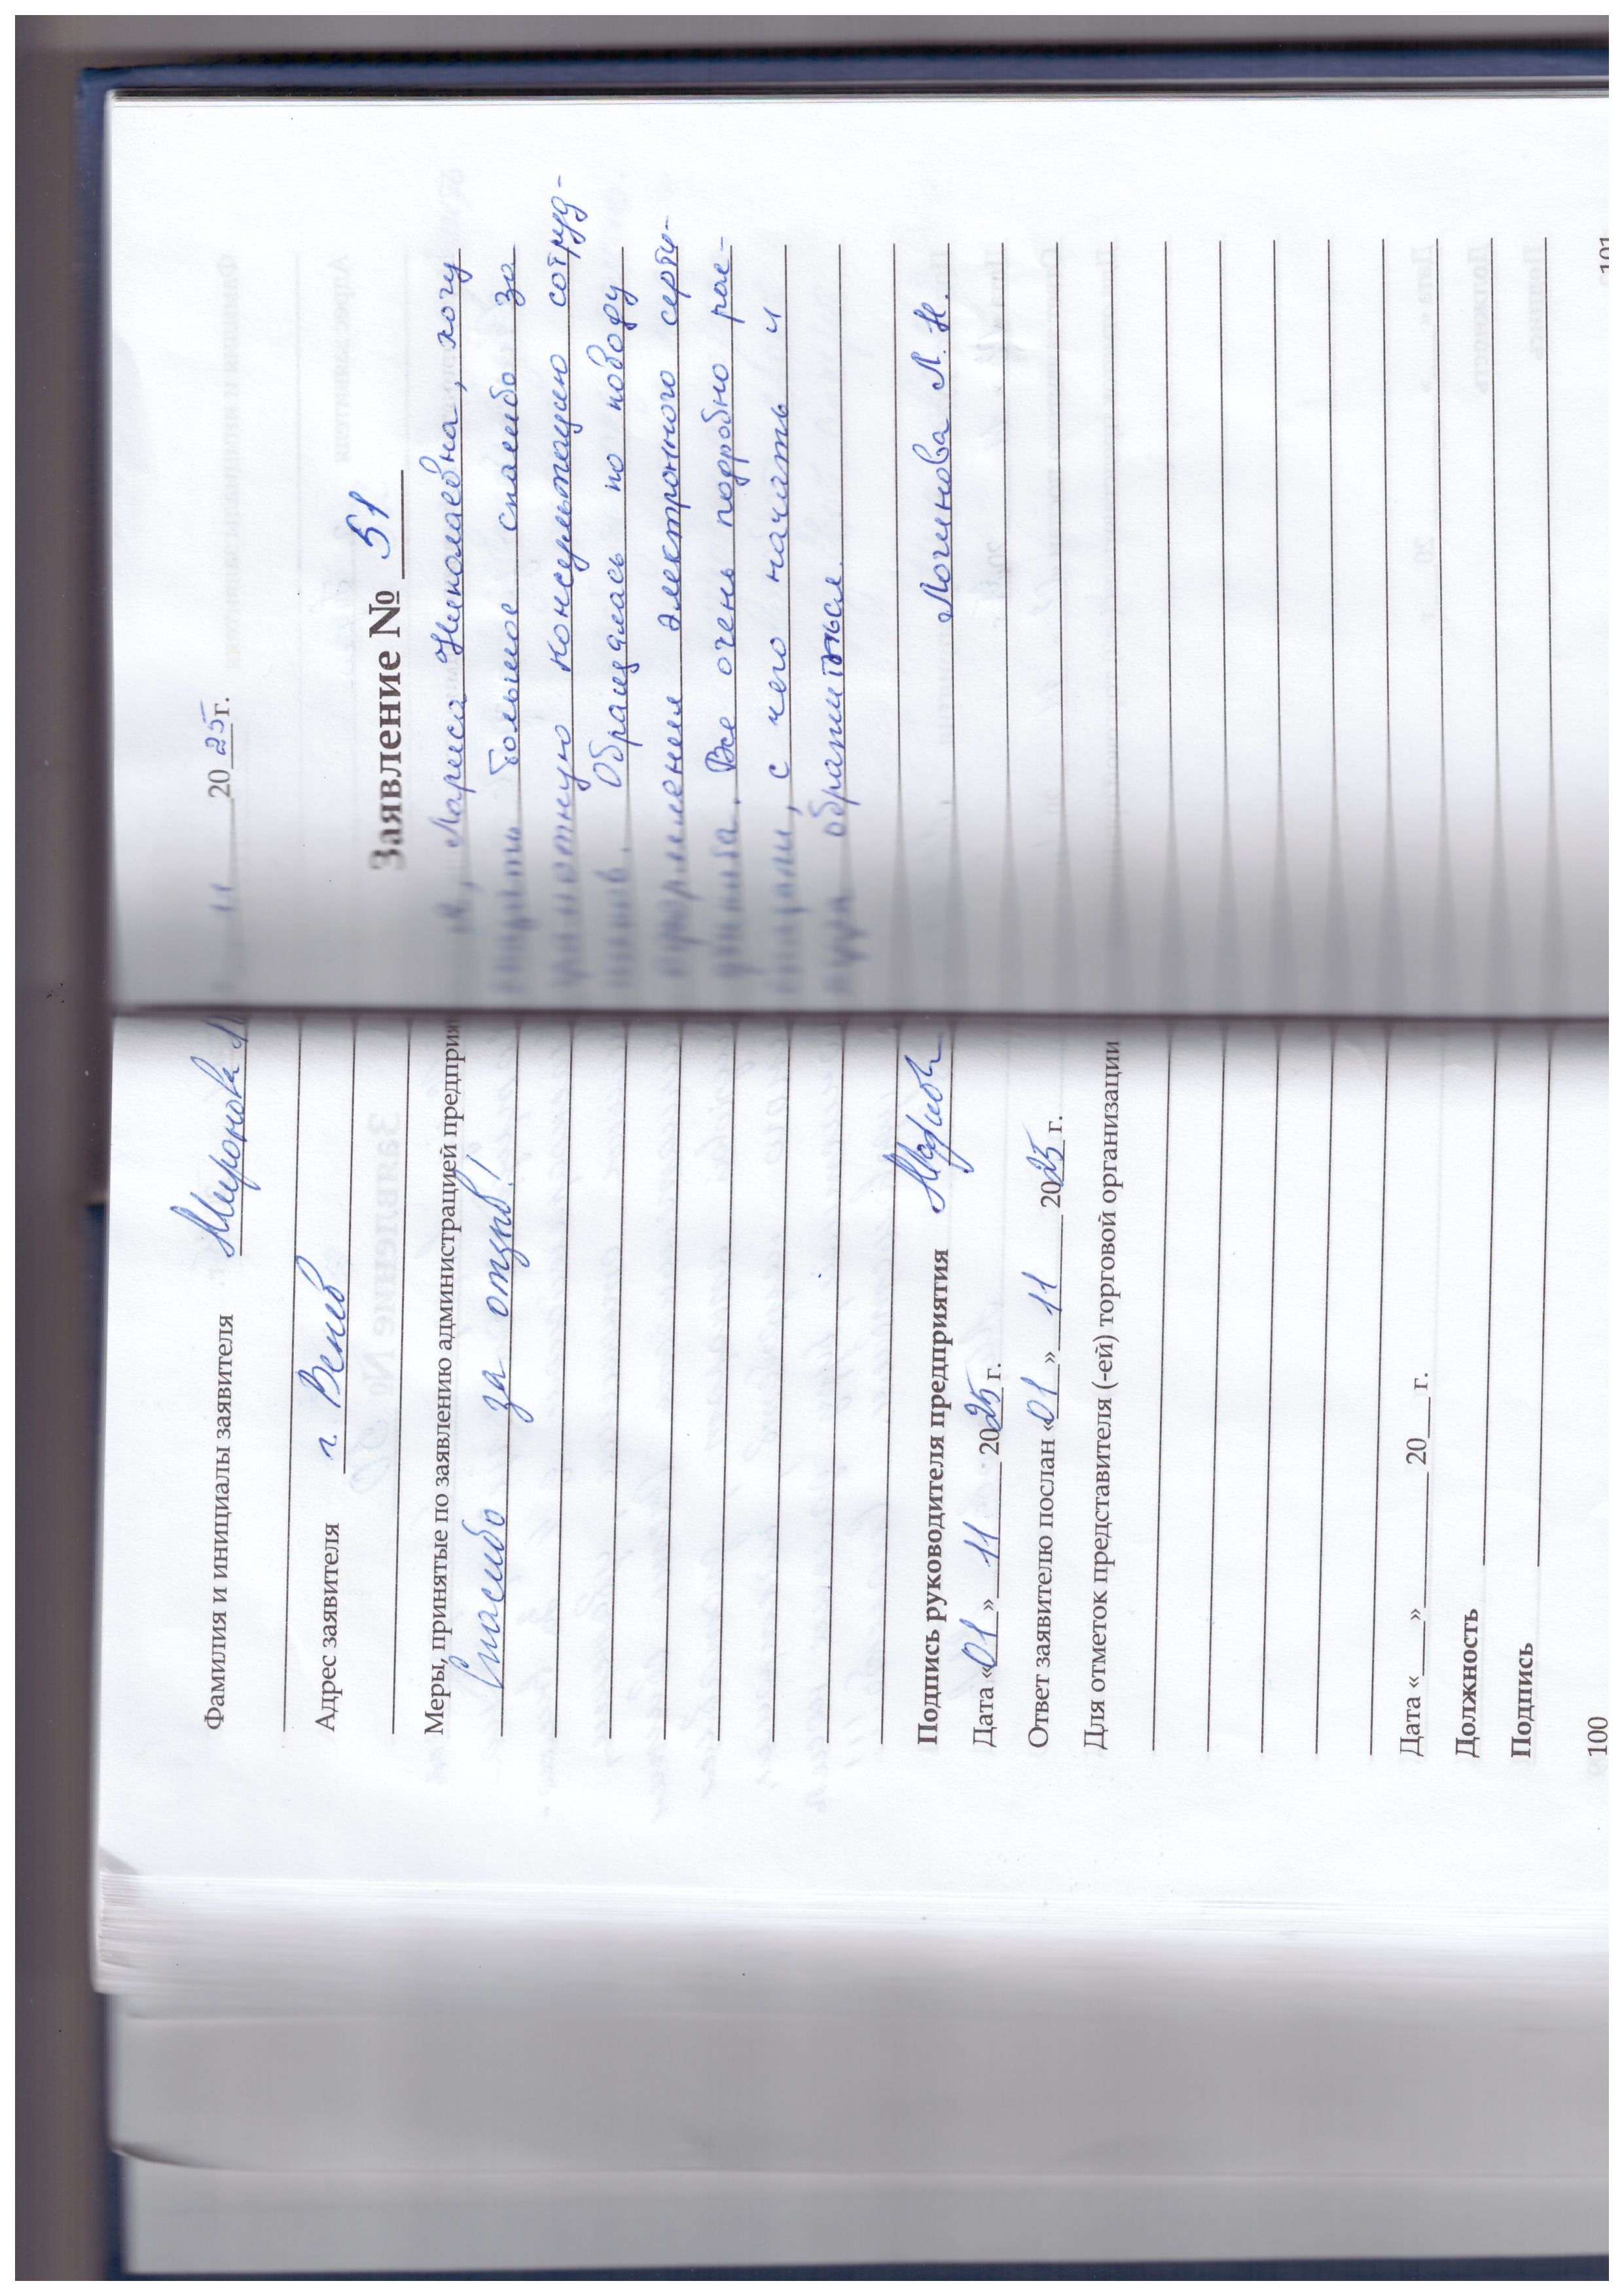 Фамилия и инициалы заявителя Миронова
Адрес заявителя г. Венев
Меры, принятые по заявлению администрацией предприя
Спасибо за отзыв!
Подпись руководителя предприятия
Дата «01» 11 2025 г.
Ответ заявителю послан «01» 11 2025 г.
Для отметок представителя (-ей) торговой организации
Дата «___» ______ 20___ г.
Должность
Подпись
100
11 2025 г.
Заявление № 51
Я, Лариса Николаевна, хочу
большое спасибо за
грамотную консультацию сотруд-
ников. Обращалась по поводу
оформления электронного серти-
фиката. Все очень подробно рас-
с чего начать и
куда обратиться.
Логинова Л. Н.
101